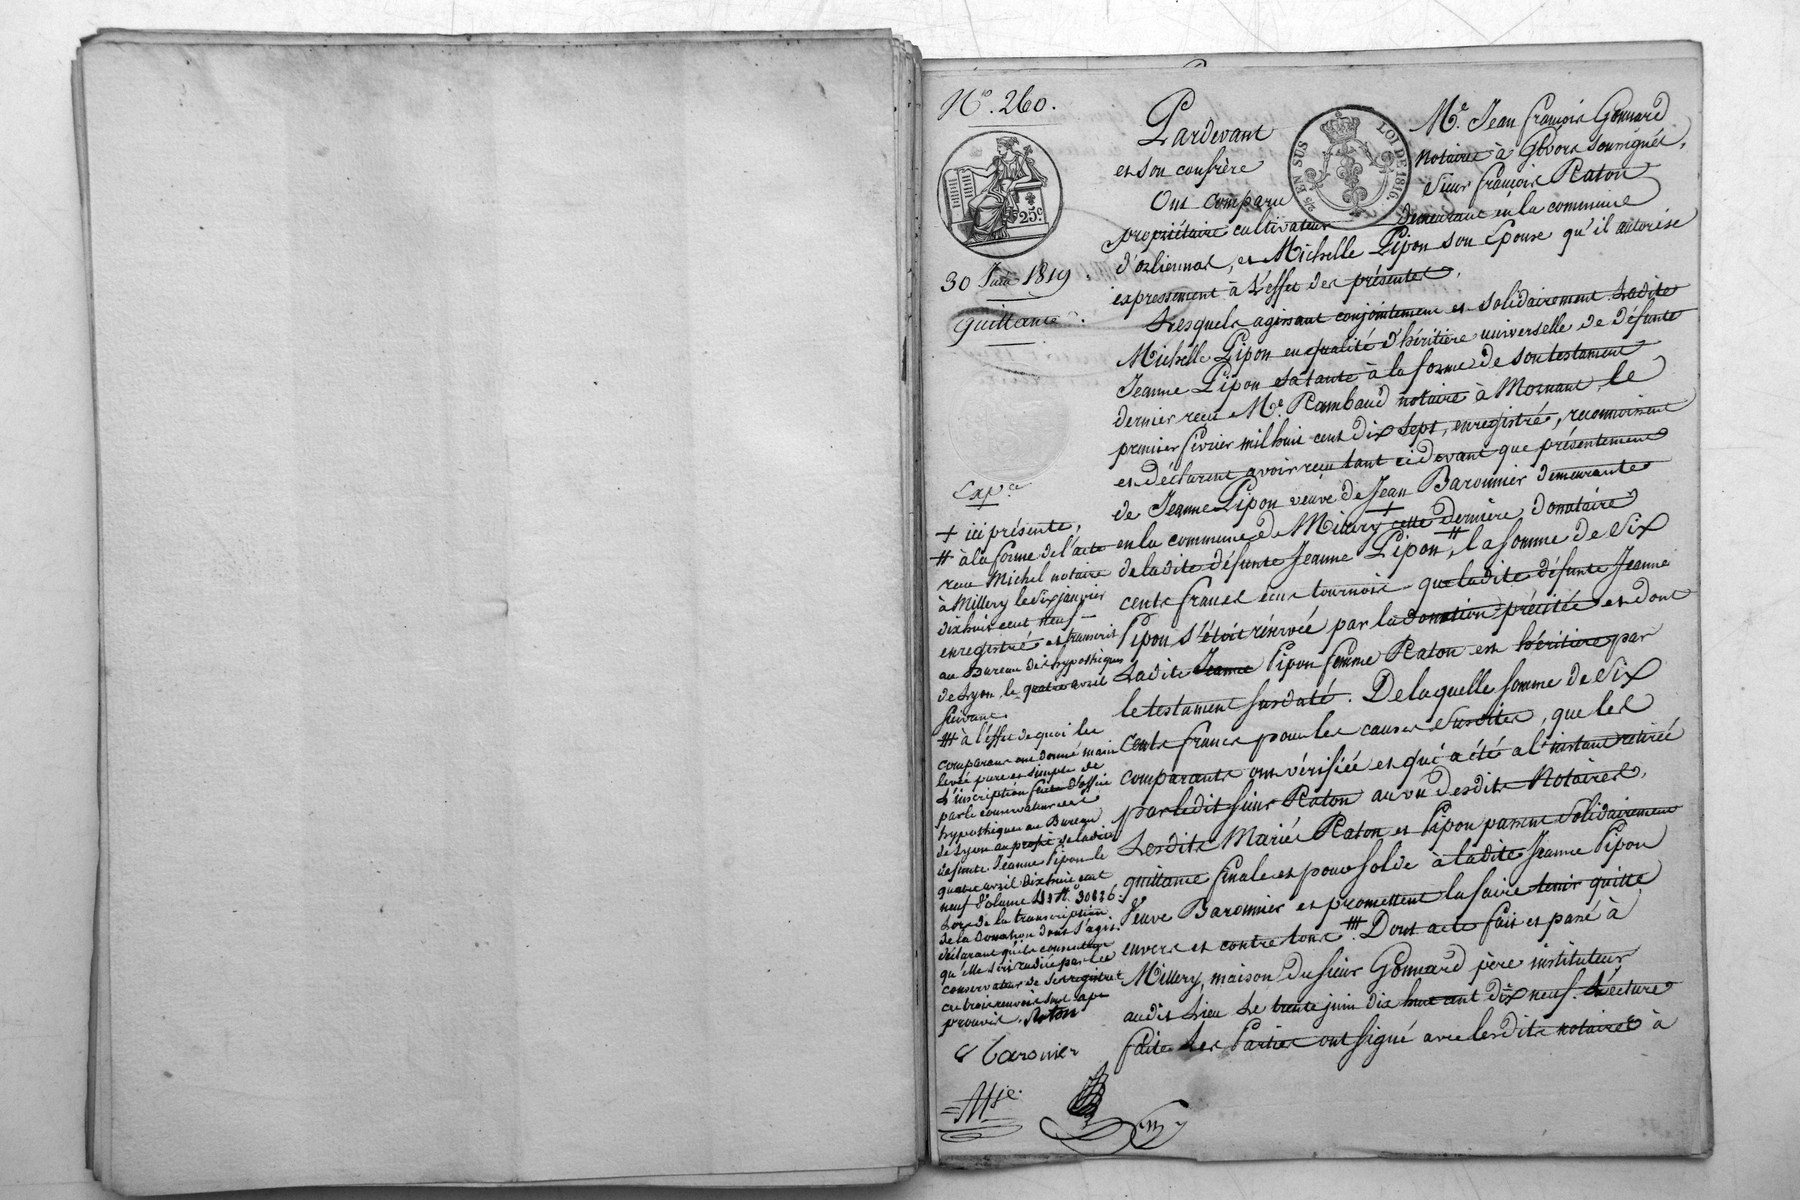 N.° 260.
25c
30 Juin 1819.
quittance.
Exp.on
25 EN SUS LOI DE 1816.
Pardevant M.e Jean françois Gonnard
et son confrère notaires à Givors soussignés,
Ont comparu Sieur françois Raton
propriétaire cultivateur demeurant en la commune
d'orliennas, et Michelle Pipon son Epouse qu'il autorise
expressement à l'effet des présentes.
Lesquels agissant conjointement et solidairement Ladite
Michelle Pipon en qualité d'héritière universelle de défunte
Jeanne Pipon sa tante à la forme de son testament
dernier reçu M.e Rambaud notaire à Mornant, le
premier février mil huit cent dix sept, enregistré, reconnoissent
et déclarent avoir reçu tant ci devant que présentement
de Jeanne Pipon veuve de Jean Baronnier demeurante
en la commune de Millery + cette dernière donatáire
de ladite défunte Jeanne Pipon, # la somme de Six
cents francs écus tournois que ladite défunte Jeanne
Pipon s'étoit réservée par la donation précitée et dont
Ladite Jeanne Pipon femme Raton est héritière par
le testament susdaté. De laquelle somme de Six
Cents francs pour les causes Susdites, que les
comparants ont vérifiée et qui a été a l'instant retirée
par ledit sieur Raton au vu desdits Notaires,
Lesdits Mariés Raton et Pipon passent Solidairement
quittance finale et pour solde à ladite Jeanne Pipon
Veuve Baronnier et promettent la faire tenir quitte
envers et contre tous. ## Dont acte fait et passé à
Millery, maison du sieur Gonnard père instituteur
audit Lieu Le trente juin dix huit cent dix neuf. Lecture
faite Les Parties ont signé avec lesdits notaires à
+ ici présente,
# à la forme de l'acte
reçu Michel notaire
à Millery le Six janvier
dix huit cent neuf
enregistré et transcrit
au Bureau des hypothèques
de Lyon le quatre avril
suivant.
## à l'effet de quoi les
comparans ont donné main
levée pure et simple de
L'inscription faite d'office
par le conservateur des
hypothèques au Bureau
de Lyon au profit de ladite
défunte Jeanne Pipon le
quatre avril dix huit cent
neuf Volume N.° 30826
Lors de la transcription
de la donation dont s'agit.
déclarant qu'ils consentent
qu'elle soit radiée par le
conservateur de Ses registres
ces trois renvois sont ap
prouvés. Raton
Baronier